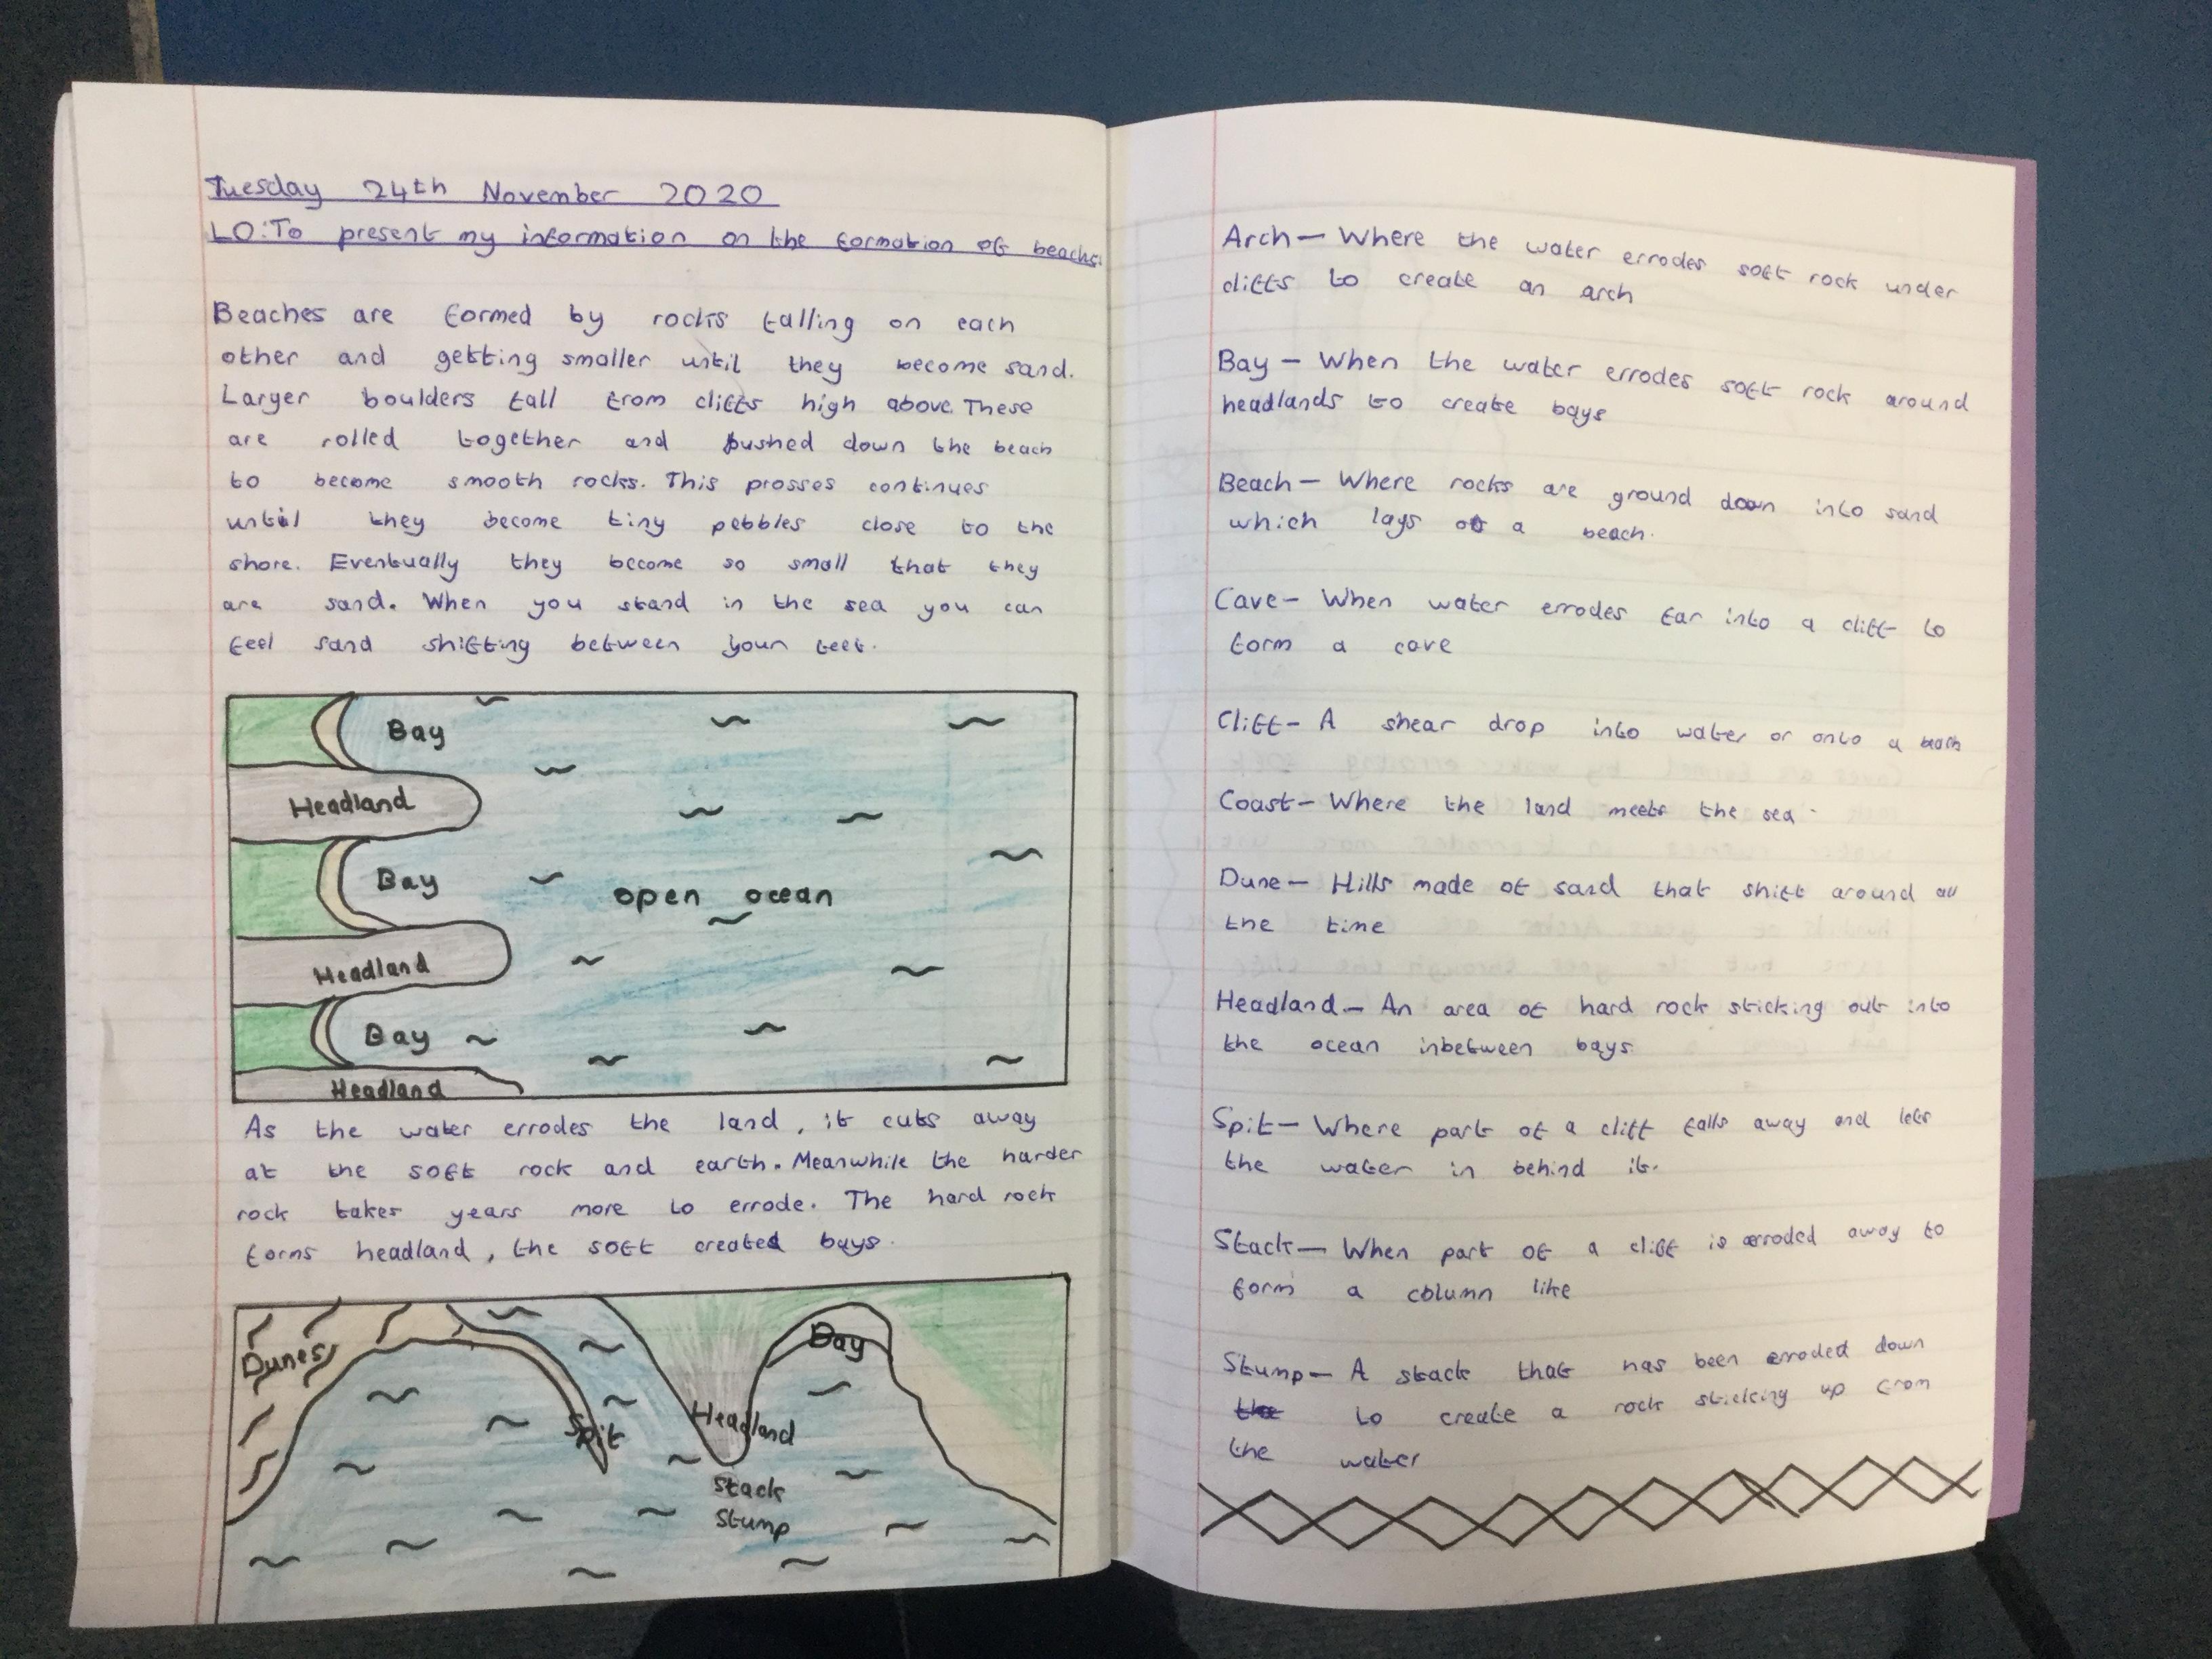 Tuesday 24th November 2020
LO: To present my information on the formation of beachs.
Beaches are formed by rocks falling on each
other and getting smaller until they become sand.
Larger boulders fall from cliffs high above. These
are rolled together and pushed down the beach
to become smooth rocks. This prosses continues
until they become tiny pebbles close to the
shore. Eventually they become so small that they
are sand. When you stand in the sea you can
feel sand shifting between your feet.
Bay
Headland
Bay
open ocean
Headland
Bay
Headland
As the water errodes the land, it cuts away
at the soft rock and earth. Meanwhile the harder
rock takes years more to errode. The hard rock
forms headland, the soft created bays.
Dunes
Bay
Spit
Headland
Stack
Stump
Arch – Where the water errodes soft rock under
cliffs to create an arch
Bay – When the water errodes soft rock around
headlands to create bays
Beach – Where rocks are ground down into sand
which lays a beach.
Cave – When water errodes far into a cliff to
form a cave
Cliff – A shear drop into water or onto a beach
Coast – Where the land meets the sea
Dune – Hills made of sand that shift around all
the time
Headland – An area of hard rock sticking out into
the ocean inbetween bays
Spit – Where part of a cliff falls away and lets
the water in behind it.
Stack – When part of a cliff is erroded away to
form a column like
Stump – A stack that has been erroded down
to create a rock sticking up from
the water